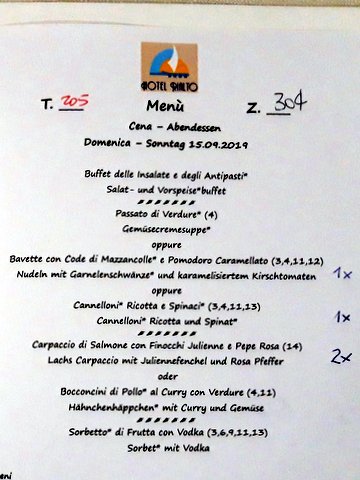 HOTEL RIALTO
T. 205 Menù Z. 304
Cena – Abendessen
Domenica – Sonntag 15.09.2019
Buffet delle Insalate e degli Antipasti*
Salat- und Vorspeise*buffet
Passato di Verdure* (4)
Gemüsecremesuppe*
oppure
Bavette con Code di Mazzancolle* e Pomodoro Caramellato (3,4,11,12)
Nudeln mit Garnelenschwänze* und karamelisiertem Kirschtomaten 1x
oppure
Cannelloni* Ricotta e Spinaci* (3,4,11,13)
Cannelloni* Ricotta und Spinat* 1x
Carpaccio di Salmone con Finocchi Julienne e Pepe Rosa (14)
Lachs Carpaccio mit Juliennefenchel und Rosa Pfeffer 2x
oder
Bocconcini di Pollo* al Curry con Verdure (4,11)
Hähnchenhäppchen* mit Curry und Gemüse
Sorbetto* di Frutta con Vodka (3,6,9,11,13)
Sorbet* mit Vodka